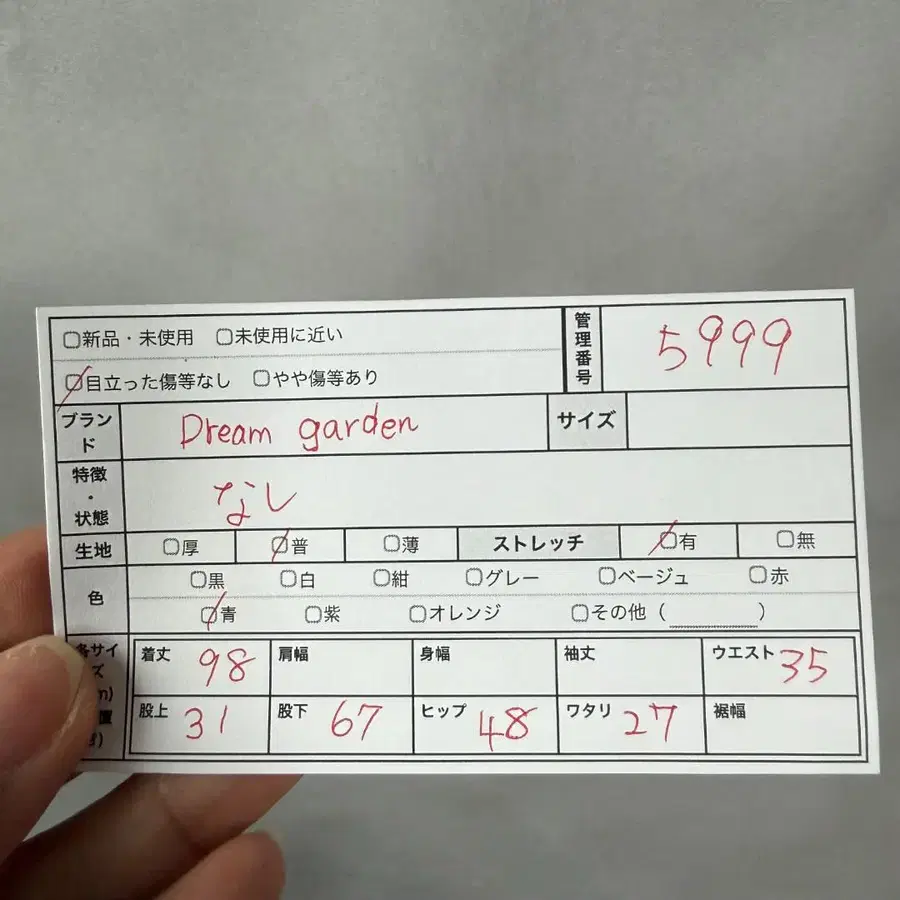 ▢新品・未使用 ▢未使用に近い
☑目立った傷等なし ▢やや傷等あり
管理番号 5999
ブランド Dream garden サイズ
特徴・状態 なし
生地 ▢厚 ☑普 ▢薄 ストレッチ ☑有 ▢無
色 ▢黒 ▢白 ▢紺 ▢グレー ▢ベージュ ▢赤
☑青 ▢紫 ▢オレンジ ▢その他（________）
各サイズ
着丈 98 肩幅 身幅 袖丈 ウエスト 35
股上 31 股下 67 ヒップ 48 ワタリ 27 裾幅